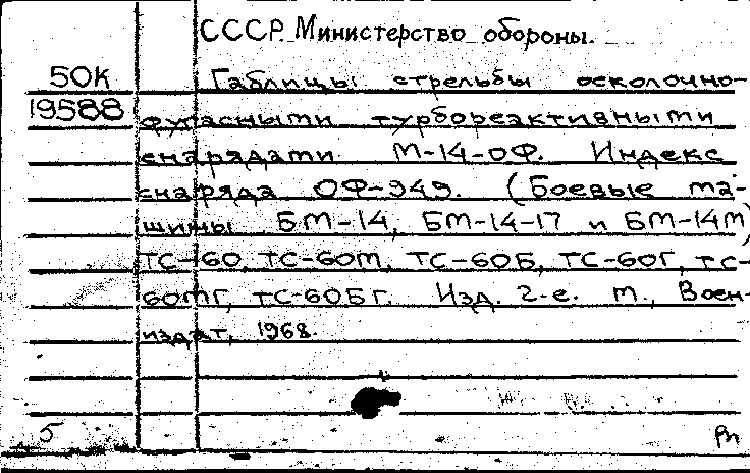 СССР. Министерство обороны.
50К Таблицы стрельбы осколочно-
19588 фугасными турбореактивными
снарядами М-14-ОФ. Индекс
снаряда ОФ-949. (Боевые ма-
шины БМ-14, БМ-14-17 и БМ-14М)
ТС-60, ТС-60М, ТС-60Б, ТС-60Г, ТС-
60МГ, ТС-60БГ. Изд. 2-е. М., Воен-
издат, 1968.
5